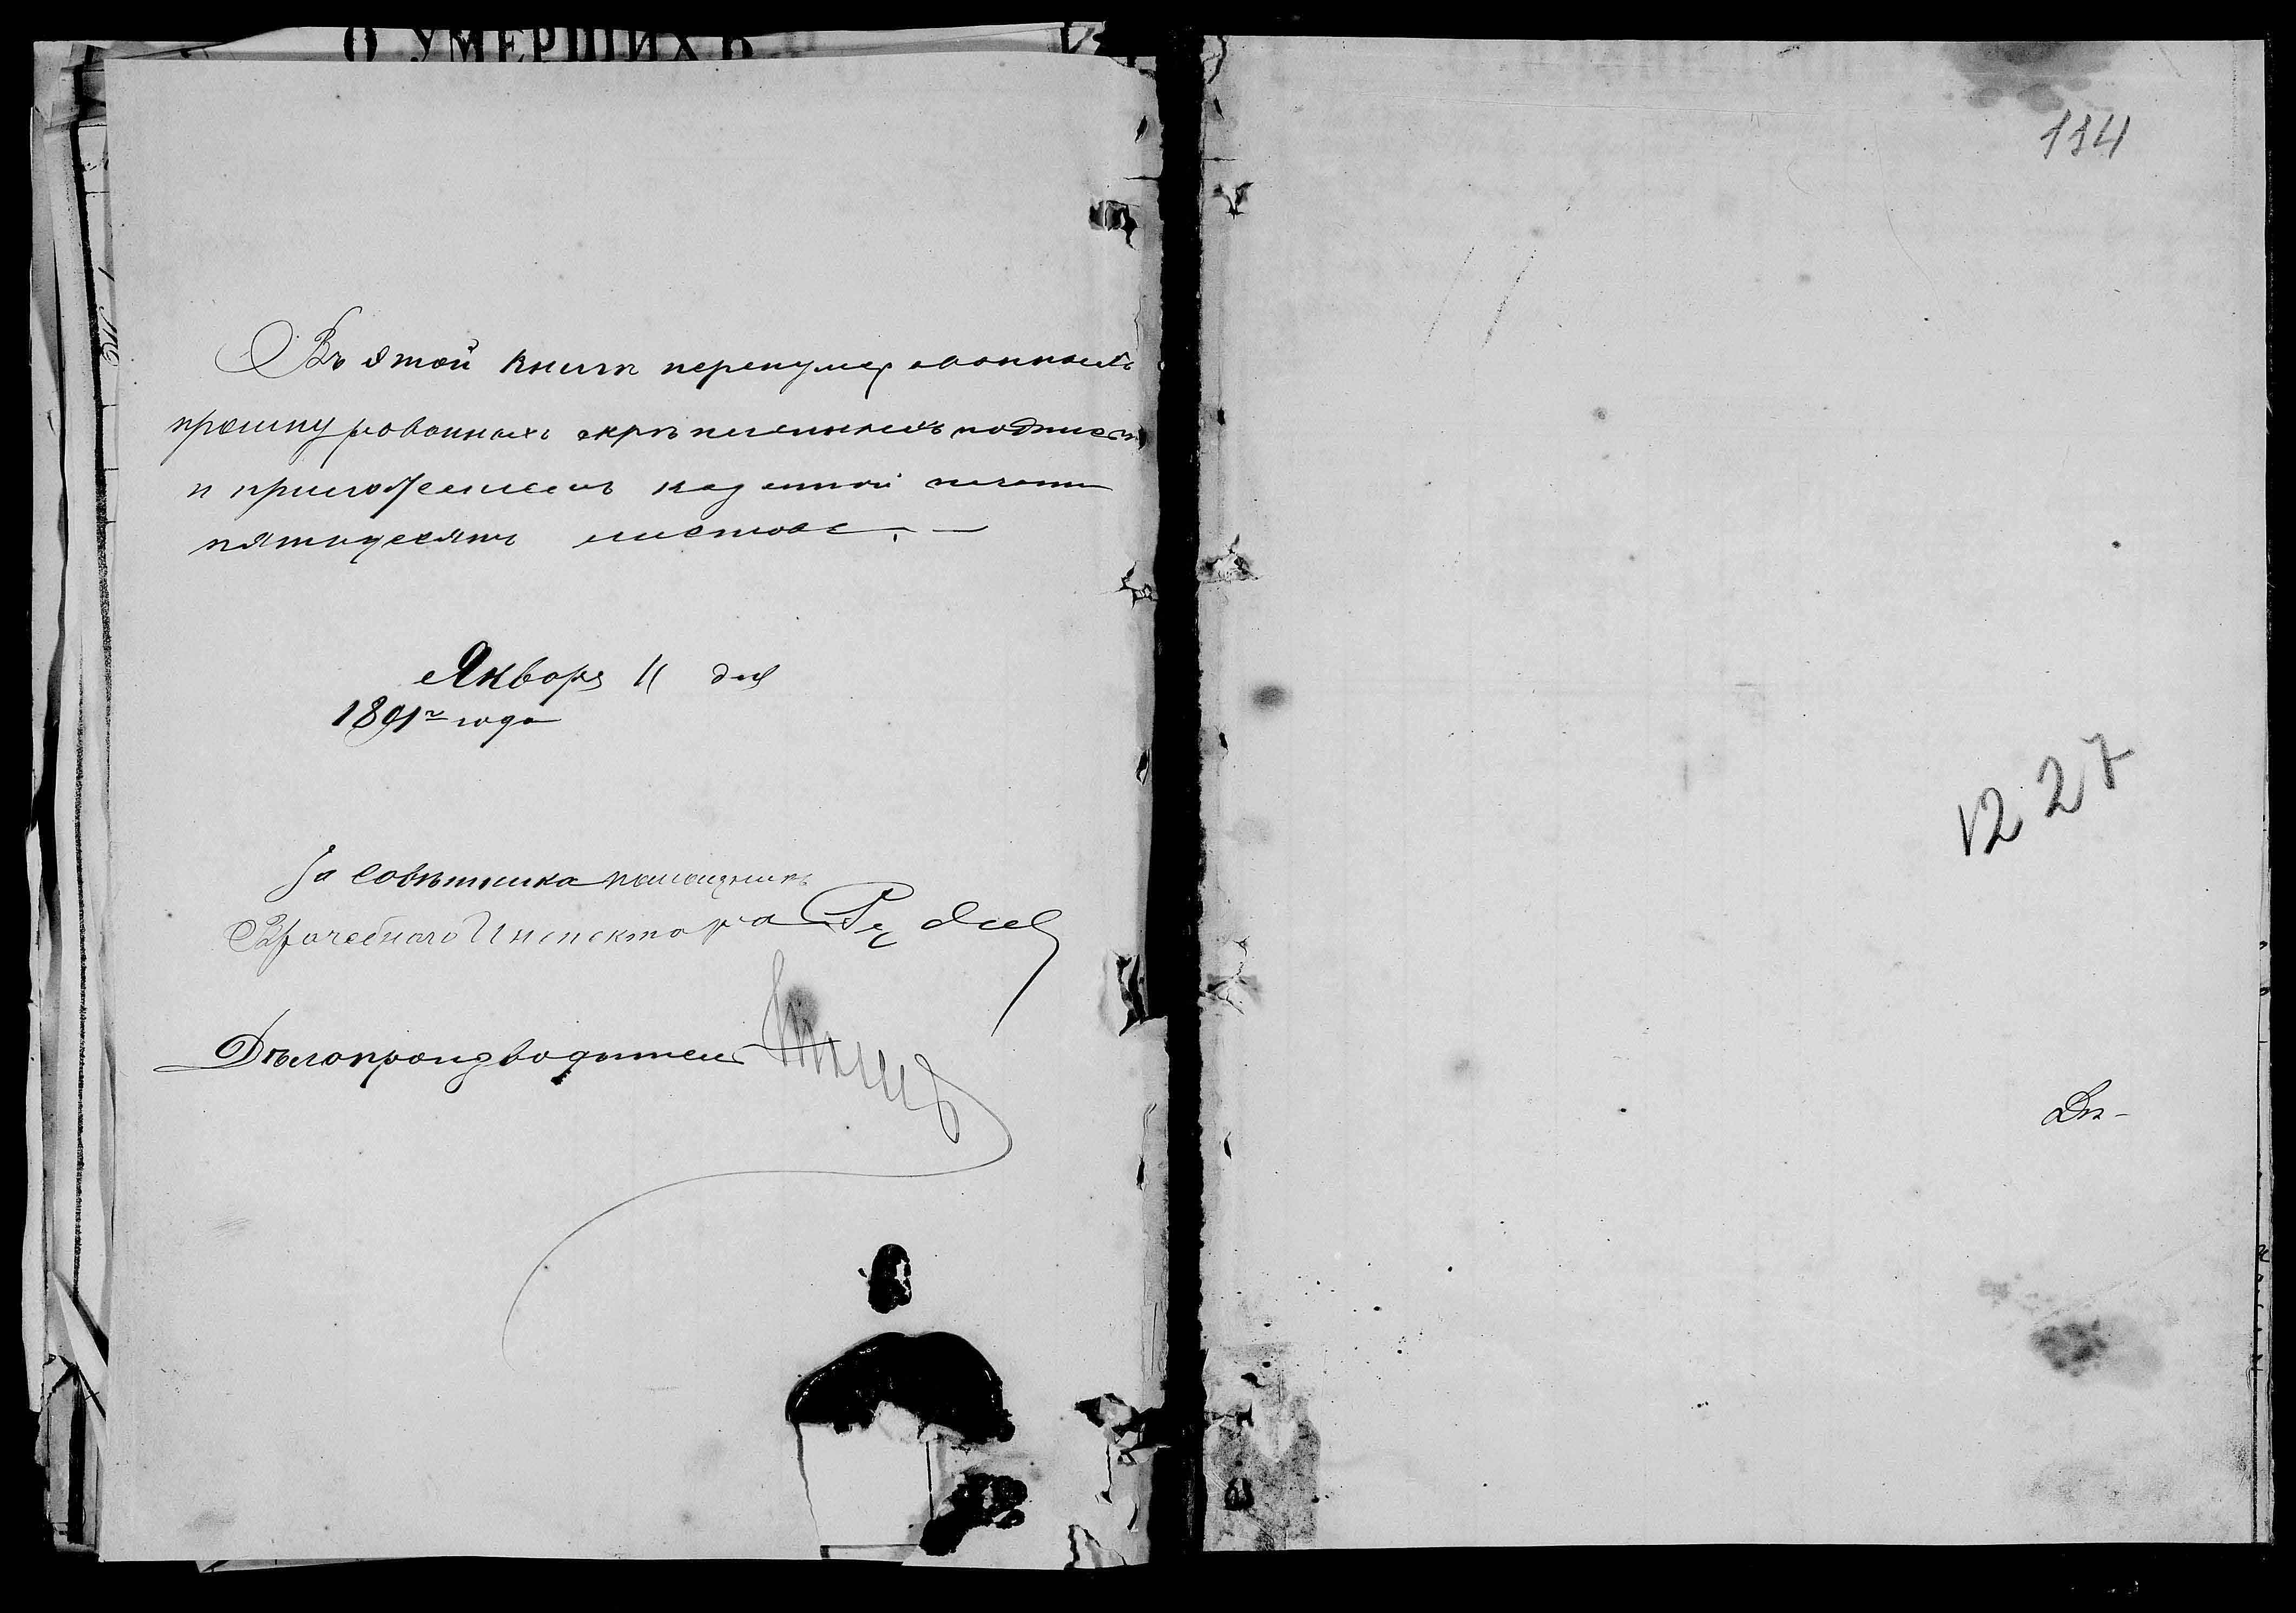 О УМЕРШИХЪ
Въ этой книгѣ перенумерованныхъ
прошнурованныхъ скрѣпленныхъ подписью
и приложеніемъ казенной печати
пятьдесятъ листовъ. —
Января 11 дня
1891 года
За Совѣтника помощникъ
Врачебнаго Инспектора
Дѣлопроизводитель
114
1227